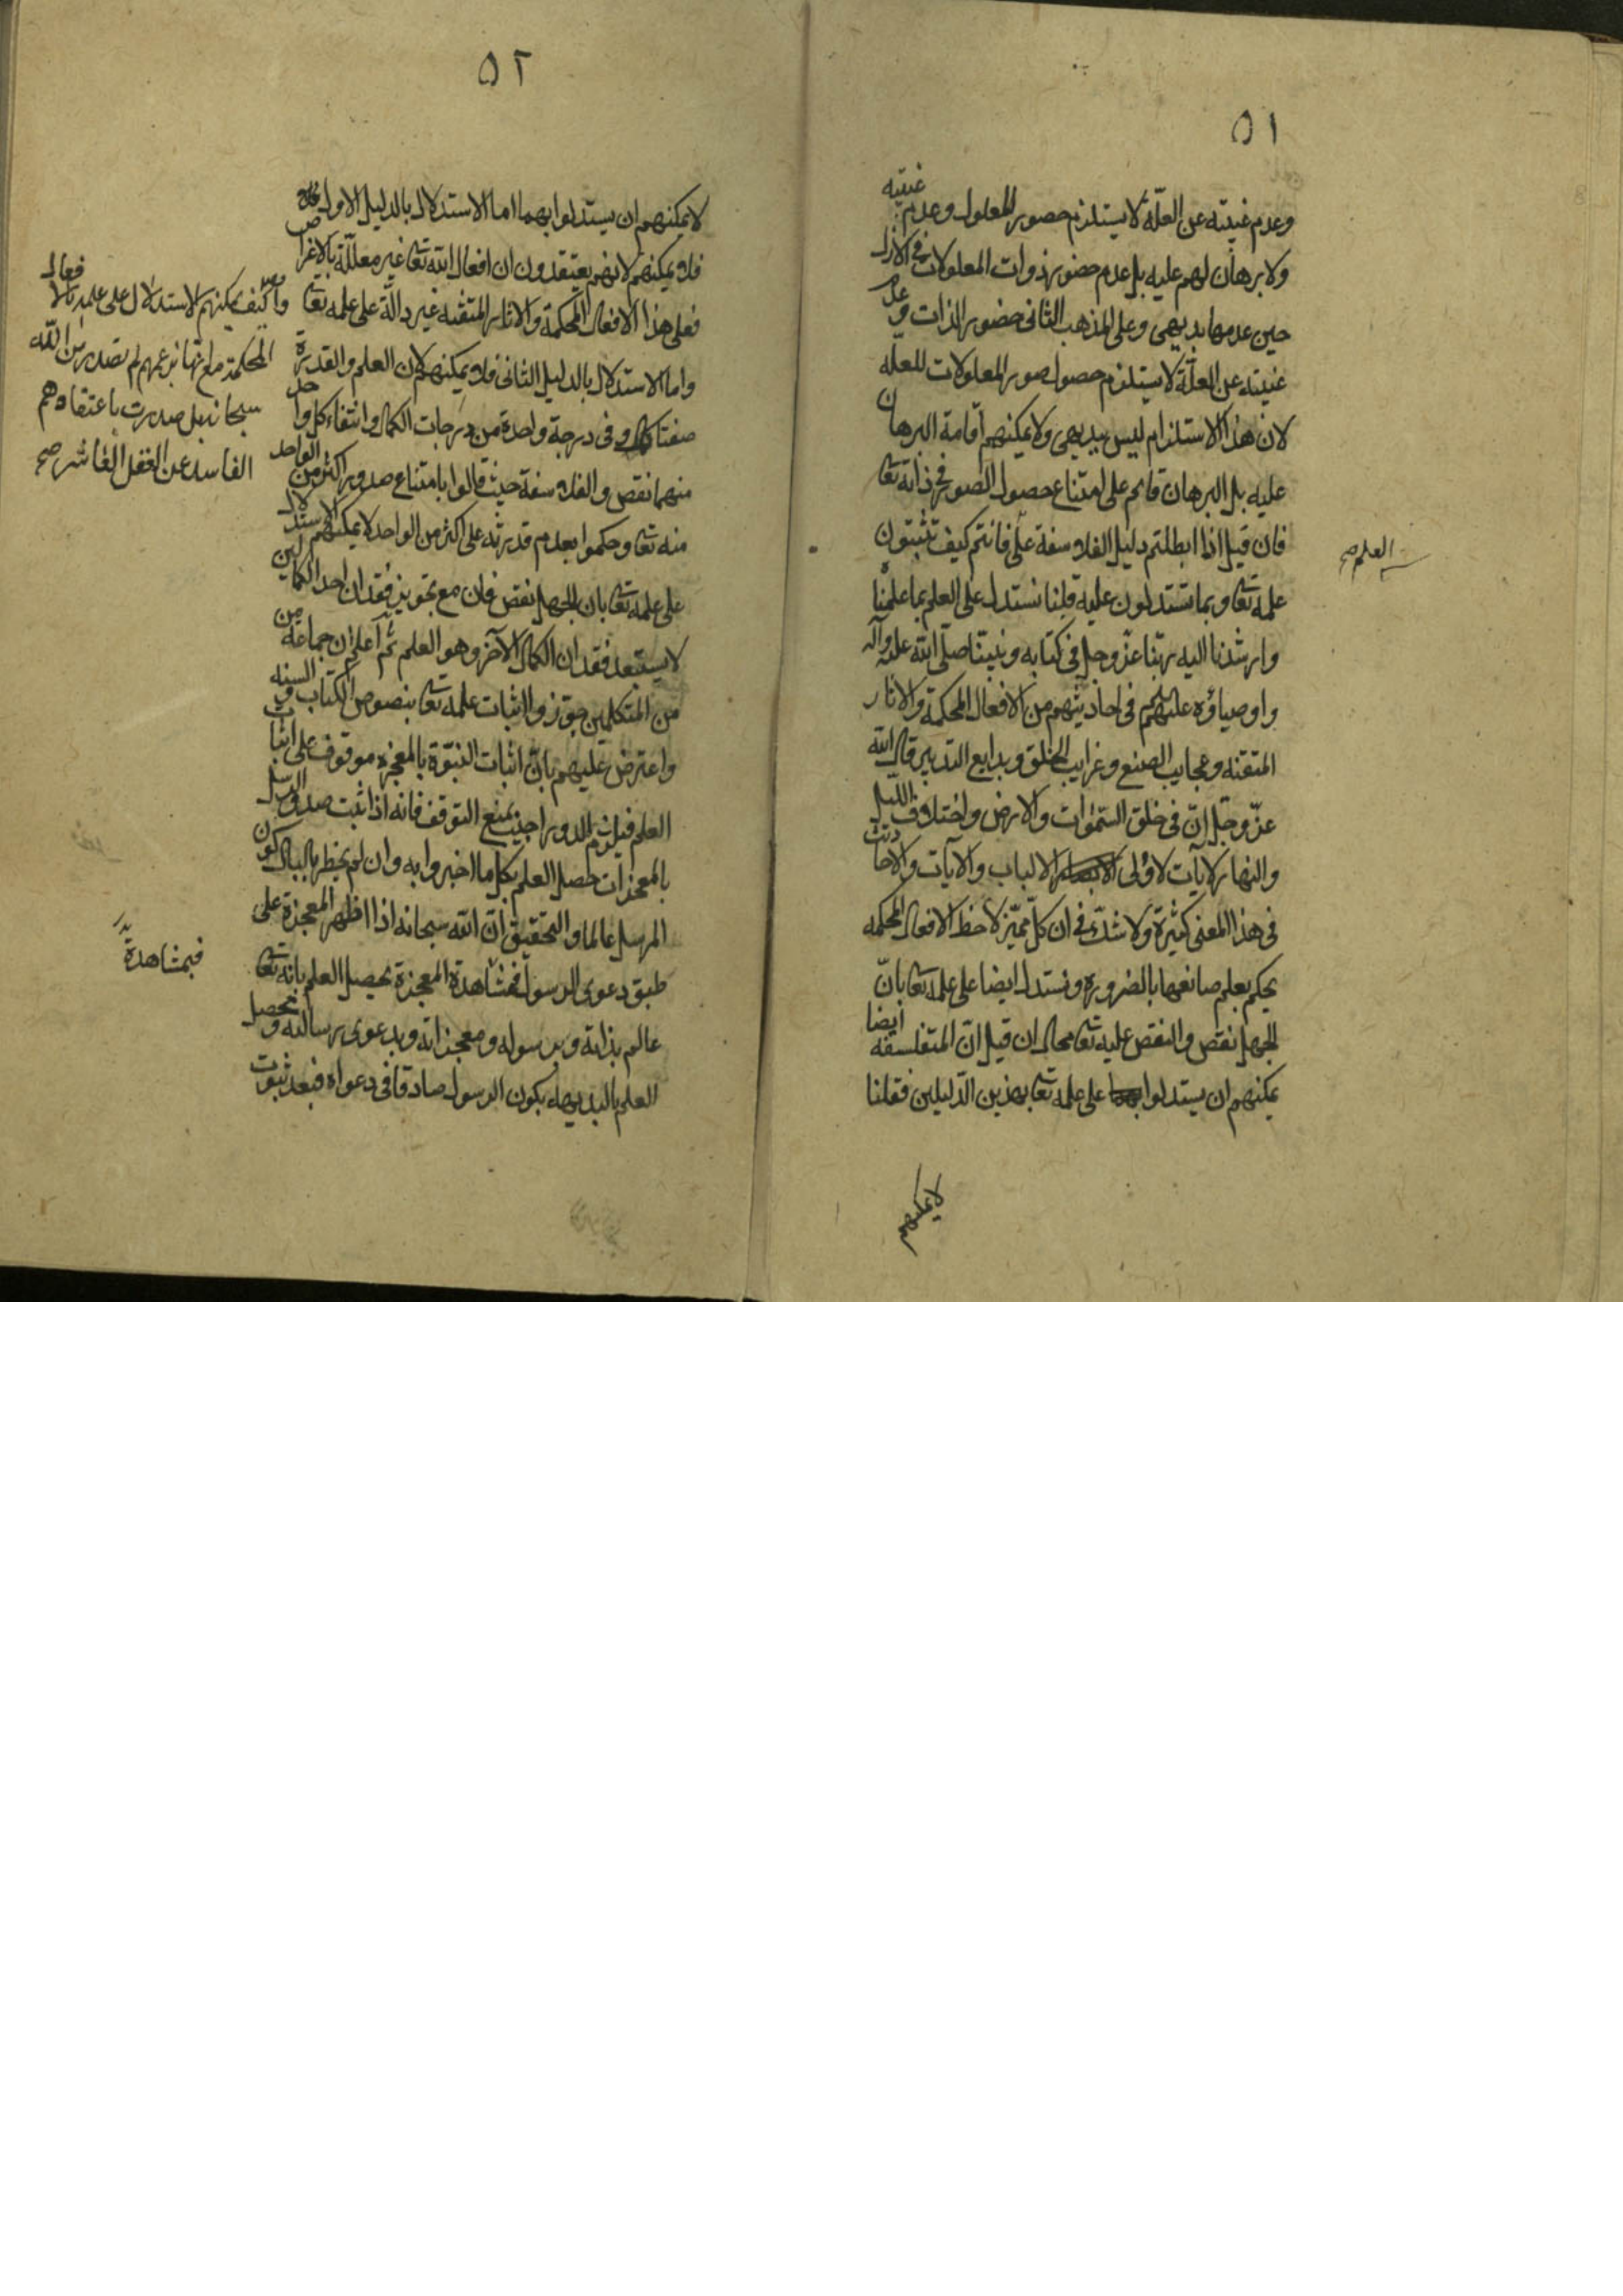 ٥١
وعدم غيبته عن العلّة لا يستلزم حضور المعلول وعدم غيبته
ولا برهان لهم عليه بل عدم حضور ذوات المعلولات في الازل
حين عدمها بديهي وعلى المذهب الثاني حضور الذات وعدم
غيبته عن العلّة لا يستلزم حصول صور المعلولات للعلّة
لان هذا الاستلزام ليس ببديهي ولا يمكنهم اقامة البرهان
عليه بل البرهان قايم على امتناع حصول الصور في ذاته تعا
فان قيل اذا ابطلتم دليل الفلاسفة على فانتم كيف تثبتون
العلم صح
علمه تعا وبما تستدلون عليه قلنا نستدل على العلم بما علمنا
وارشدنا اليه ربّنا عزّ وجل في كتابه ونبيّنا صلّى الله عليه وآله
واوصياؤه عليهم في احاديثهم من الافعال المحكمة والاثار
المتقنة وعجايب الصنع وغرايب الخلق وبدايع التدبير قال الله
عزّ وجلّ انّ في خلق السّموات والارض واختلاف الليل
والنهار لآيات لاولى الالباب والآيات والاحاديث
في هذا المعنى كثيرة ولا شكّ في ان كلّ مميّز لاحظ الافعال المحكمه
يحكم بعلم صانعها بالضروره ونستدل ايضا على علمه تعا بانّ
الجهل نقص والنقص عليه تعا محال ان قيل انّ المتفلسفه ايضا
يمكنهم ان يستدلوا على علمه تعا بهذين الدّليلين فقلنا
لا يمكنهم
٥٢
لا يمكنهم ان يستدلوا بهما اما الاستدلال بالدليل الاول
فلا يمكنهم لانهم يعتقدون ان افعال الله تعا غير معلّلة بالاغراض
فعلى هذا الافعال المحكمة والاثار المتقنه غير دالّة على علمه تعا
وايض كيف يمكنهم الاستدلال على علمه بالافعال
المحكمة مع انّها بزعمهم لم تصدر من الله
سبحانه بل صدرت باعتقادهم
الفاسد عن العقل العاشر صح
واما الاستدلال بالدليل الثاني فلا يمكنهم لان العلم والقدرة
صفتا كمال وفي درجة واحدة من درجات الكمال وانتفاء كل واحد
منهما نقص والفلاسفة حيث قالوا بامتناع صدور اكثر من الواحد
منه تعا وحكموا بعدم قدرته على اكثر من الواحد لا يمكنهم الاستدلال
على علمه تعا بان الجهل نقص فان مع تجويز فقدان احد الكمالين
لا يستبعد فقدان الكمال الآخر وهو العلم ثم اعلم ان جماعة من
من المتكلمين جوّزوا اثبات علمه تعا بنصوص الكتاب والسنه
واعترض عليهم بانّ اثبات النبوّة بالمعجزه موقوف على اثبات
العلم فيلزم الدور اجيب بمنع التوقف فانه اذا ثبت صدق الرسل
بالمعجزات حصل العلم بكل ما اخبروا به وان لم يخطر بالبال كون
المرسل عالما والتحقيق انّ الله سبحانه اذا اظهر المعجزة على
طبق دعوى الرسول فبمشاهدة المعجزة يحصل العلم بانه تعا
فبمشاهدة
عالم بذاته وبرسوله ومعجزاته وبدعوى رسالته ويحصل
العلم بالبديهه بكون الرسول صادقا في دعواه فبعد ثبوت